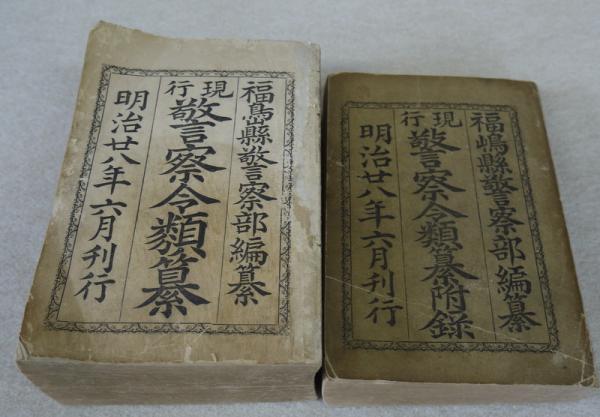 福島縣警察部編纂
現行
警察令類纂
明治廿八年六月刊行
福嶋縣警察部編纂
現行
警察令類纂附錄
明治廿八年六月刊行